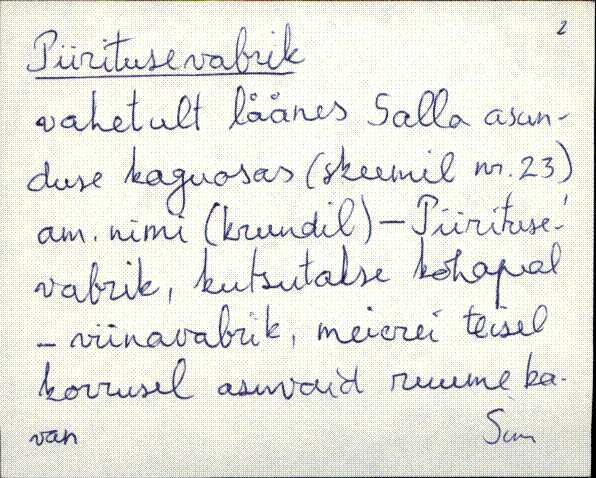 2
Piiritusevabrik
vahetult läänes Salla asun-
duse kaguosas (skeemil nr. 23)
am. nimi (krundil) – Piirituse-
vabrik, kutsutakse kohapeal
– viinavabrik, meierei teisel
korrusel asuvaid ruume ka-
van